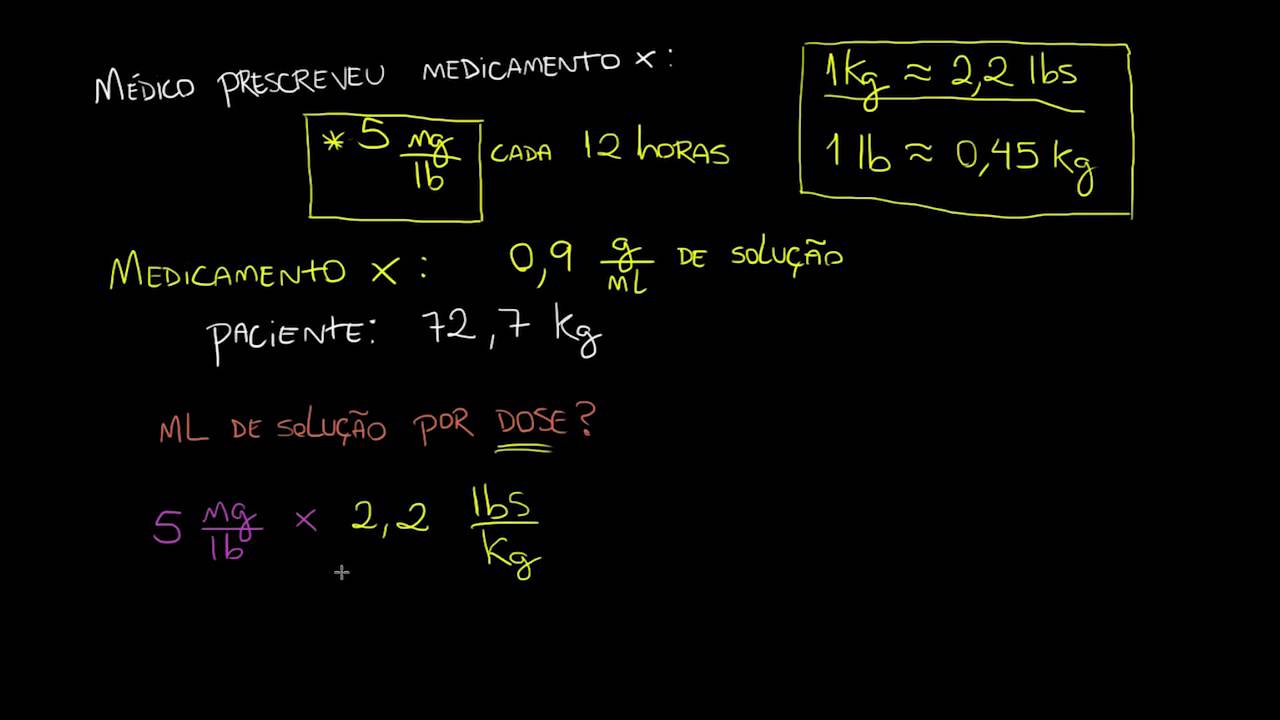 MÉDICO PRESCREVEU MEDICAMENTO X:
* 5 mg/lb CADA 12 HORAS
1 Kg ≈ 2,2 lbs
1 lb ≈ 0,45 kg
MEDICAMENTO X: 0,9 g/ML DE SOLUÇÃO
PACIENTE: 72,7 kg
ML DE SOLUÇÃO POR DOSE?
5 mg/lb × 2,2 lbs/Kg